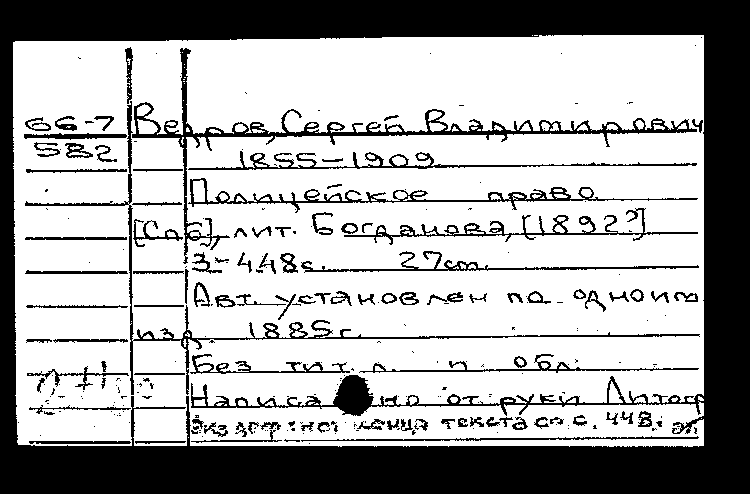 66-7 Ведров, Сергей Владимирович
582 1855-1909
Полицейское право
[Спб], лит. Богданова, [1892?]
3-448с. 27ст.
Авт. установлен по одноим
изд. 1885г.
Без тит. л. и обл.
Написано от руки Литогр
Экз деф: нет конца текста со с. 448.